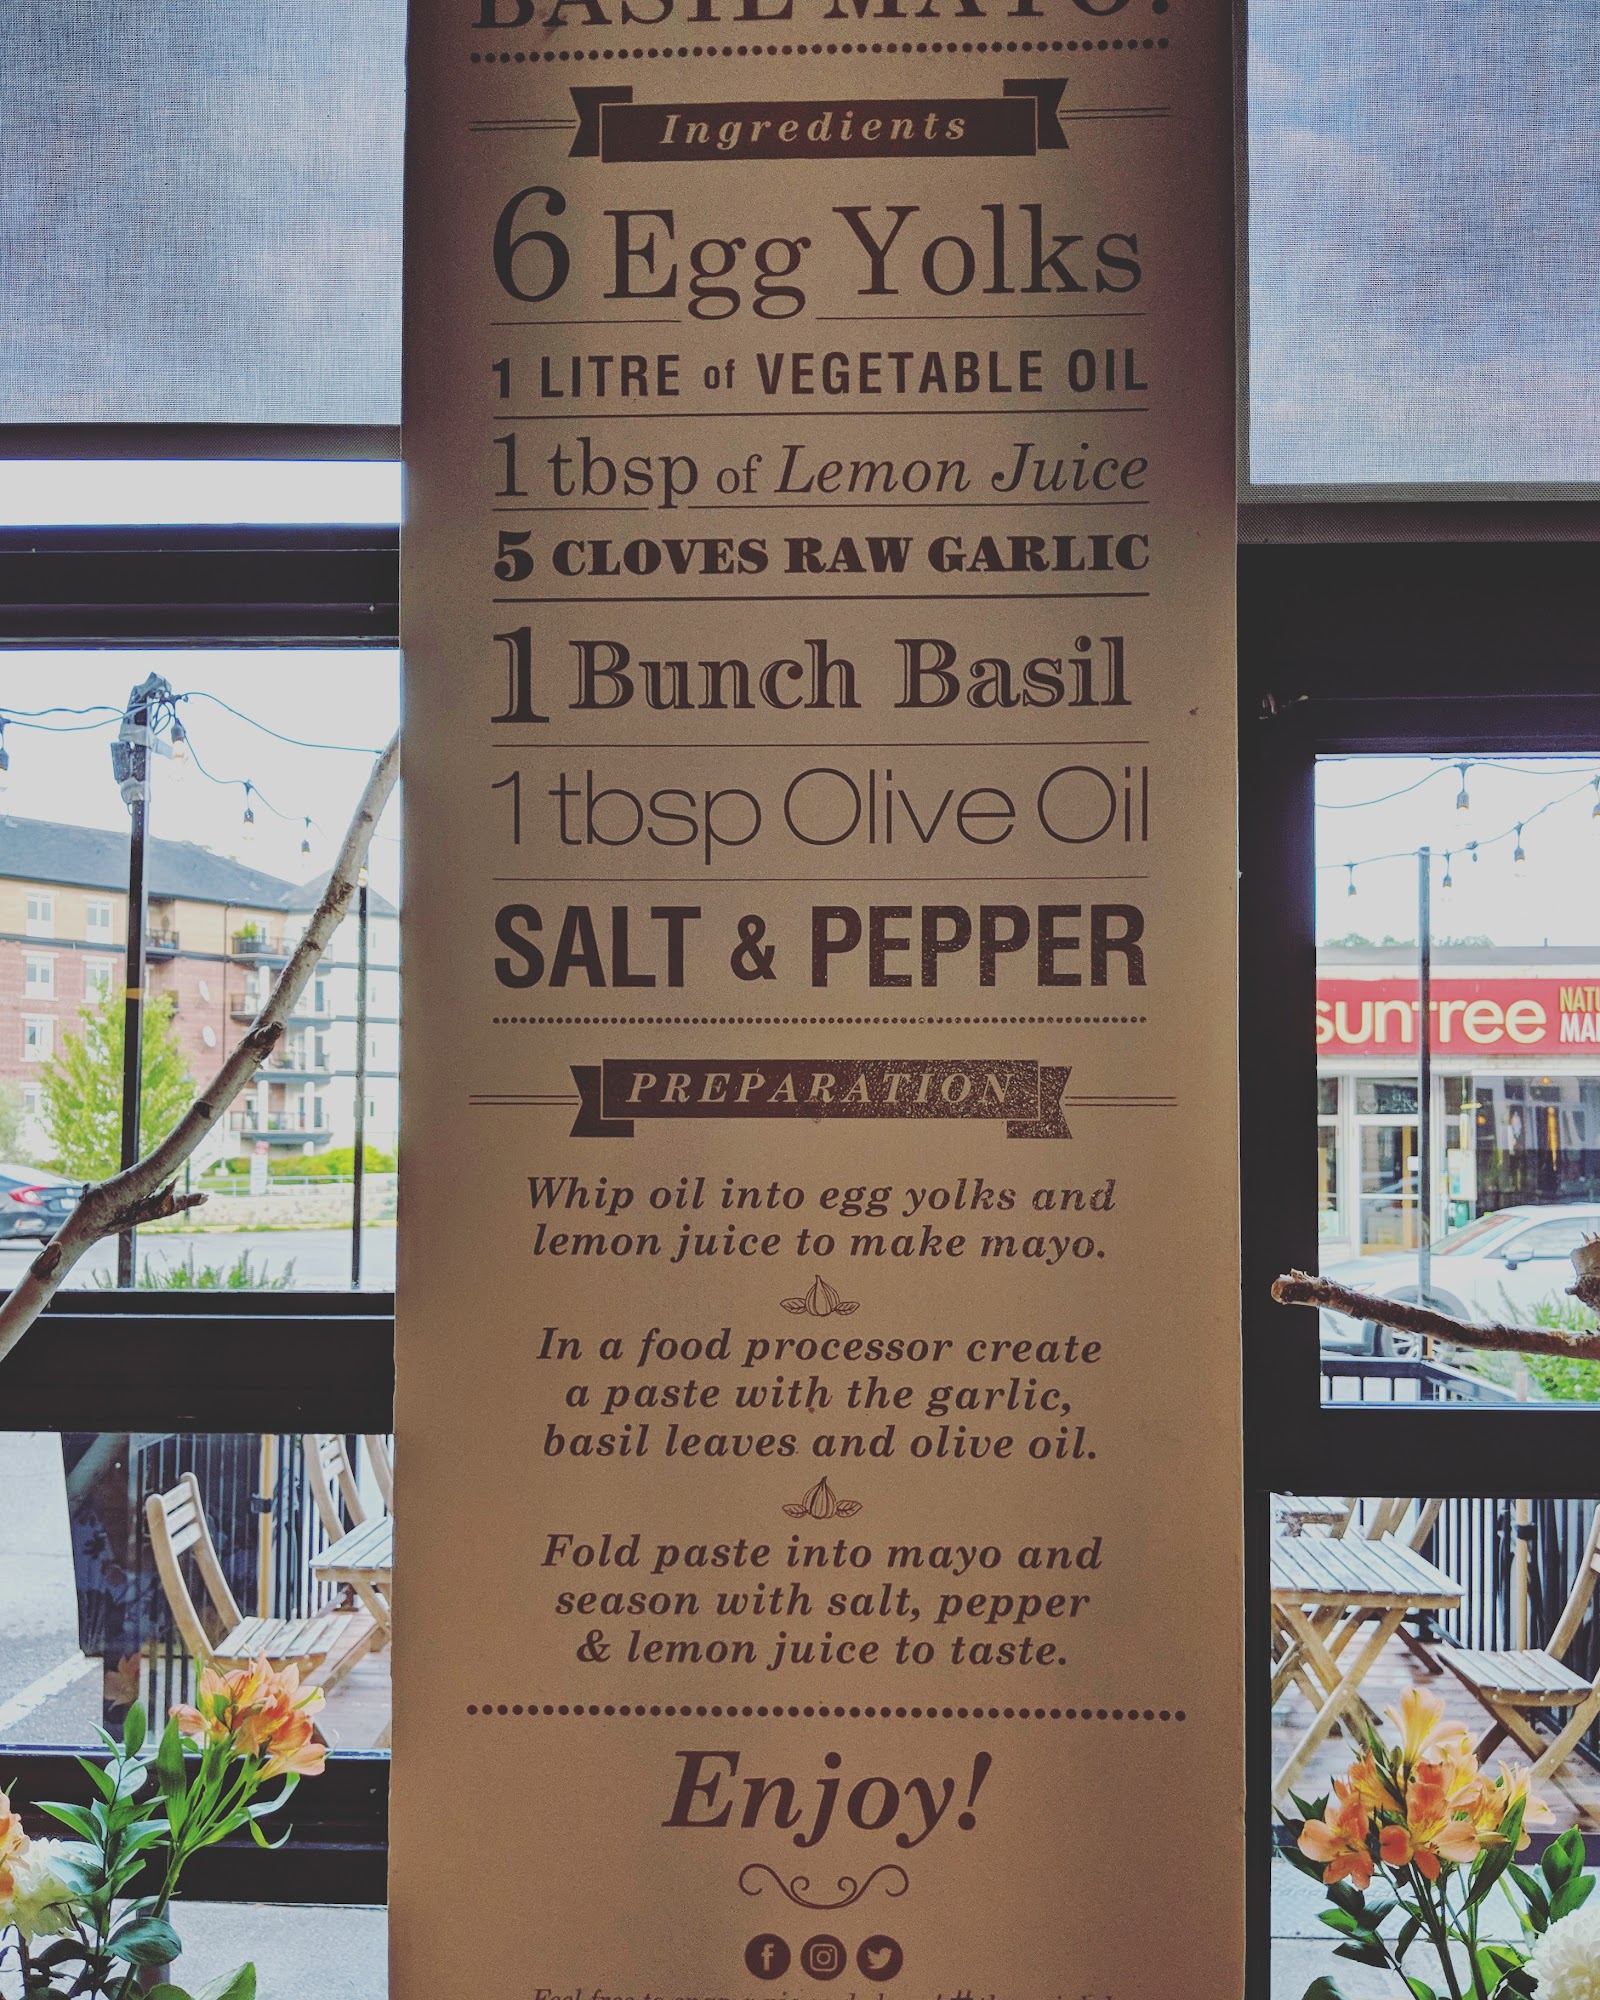 BASIL MAYO!
Ingredients
6 Egg Yolks
1 LITRE of VEGETABLE OIL
1 tbsp of Lemon Juice
5 CLOVES RAW GARLIC
1 Bunch Basil
1 tbsp Olive Oil
SALT & PEPPER
PREPARATION
Whip oil into egg yolks and
lemon juice to make mayo.
In a food processor create
a paste with the garlic,
basil leaves and olive oil.
Fold paste into mayo and
season with salt, pepper
& lemon juice to taste.
Enjoy!
Feel free to
suntree